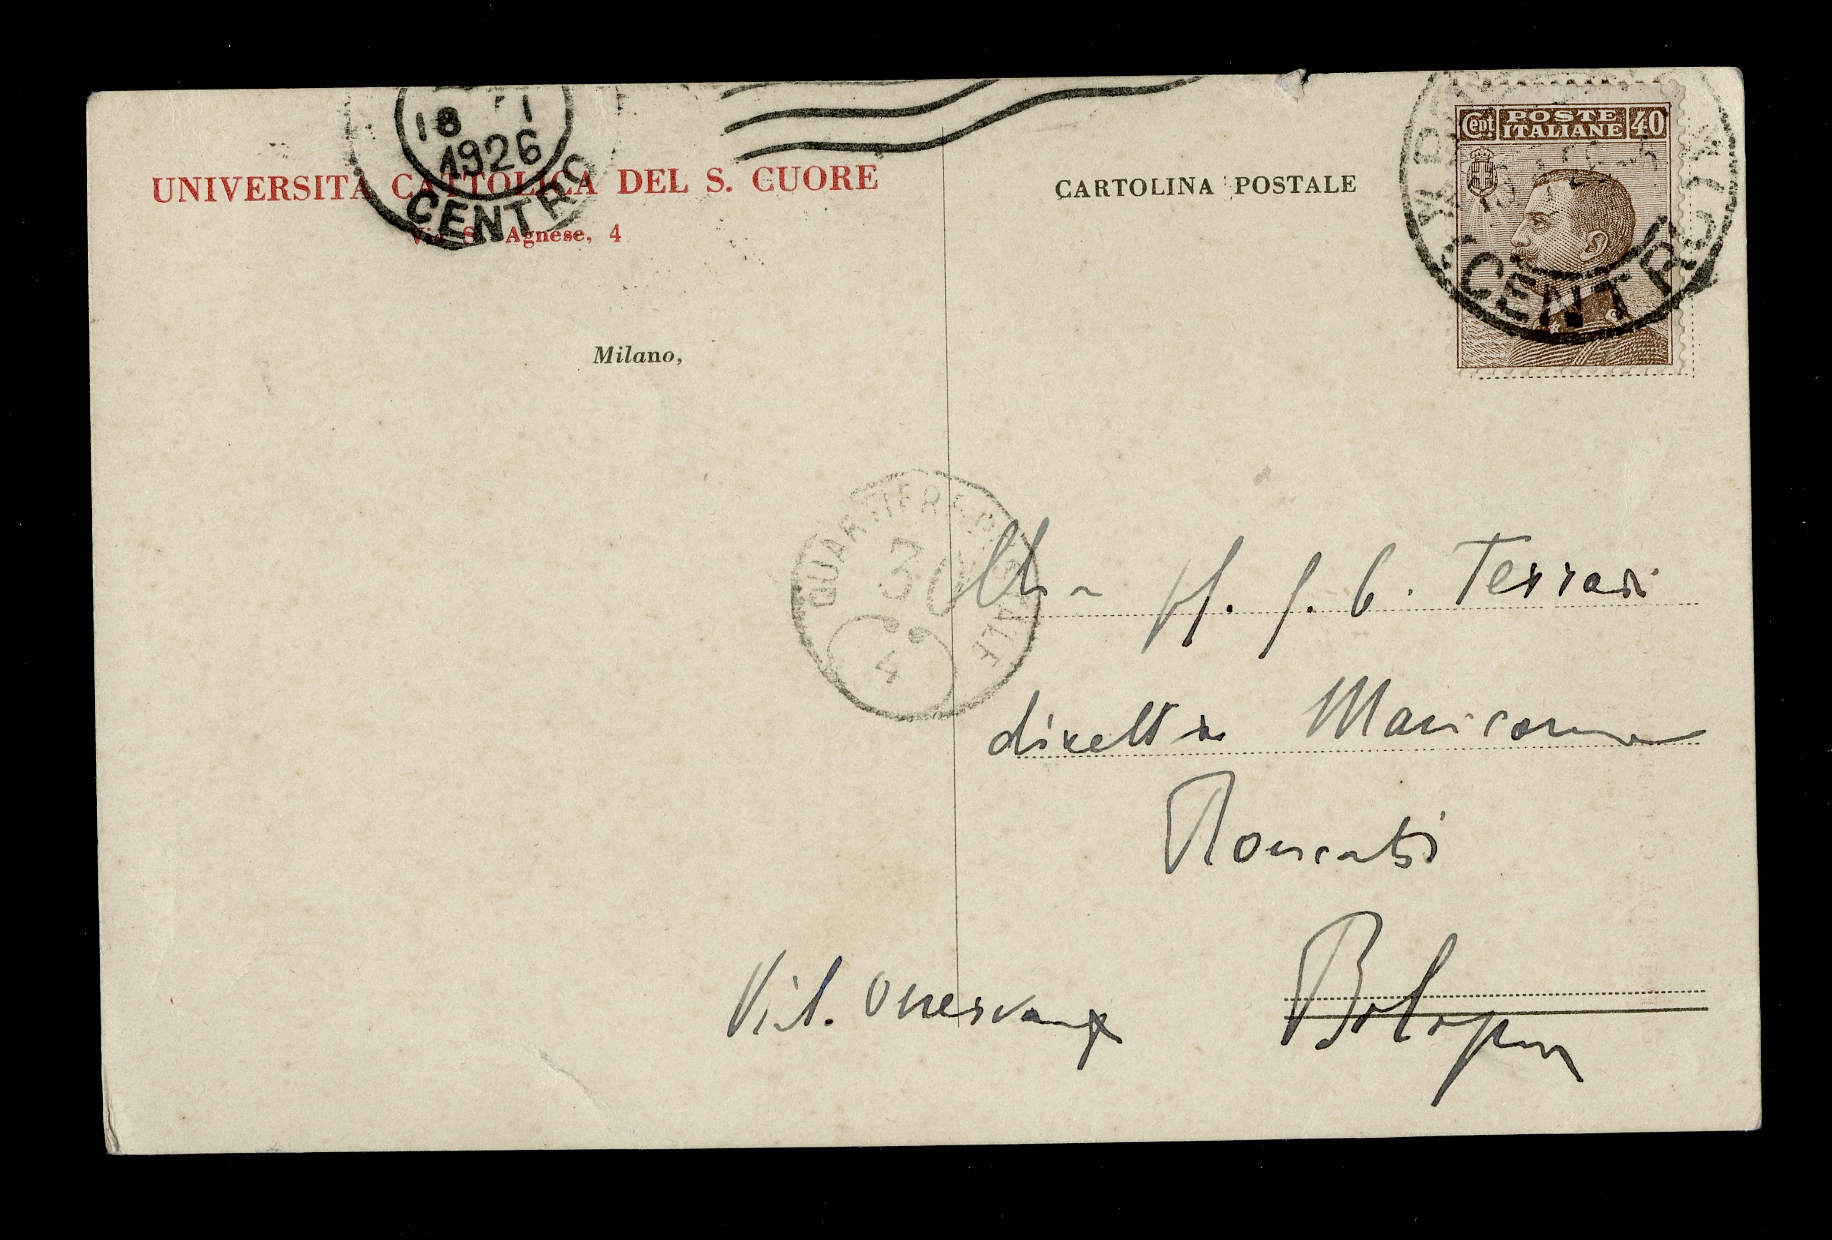 18 1
1926
CENTRO
UNIVERSITÀ CATTOLICA DEL S. CUORE
Via S. Agnese, 4
CARTOLINA POSTALE
Cent POSTE ITALIANE 40
CENTRO
Milano,
QUARTIERE POSTALE
30
4
G. C. Ferrari
direttore Manicomio
Roncati
Bologna